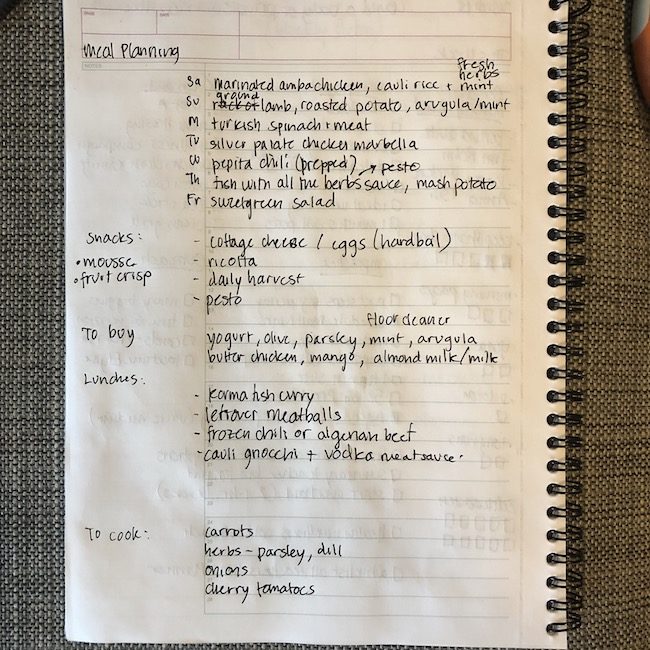 Meal Planning
NOTES
fresh
herbs
Sa marinated amba chicken, cauli rice + mint
ground
Su rack of lamb, roasted potato, arugula/mint
M turkish spinach + meat
Tu silver palate chicken marbella
W pepita chili (prepped) → pesto
Th fish with all the herbs sauce, mash potato
Fr sweetgreen salad
Snacks: - cottage cheese / eggs (hardboil)
• mousse - ricotta
• fruit crisp - daily harvest
- pesto
floor cleaner
To buy yogurt, olive, parsley, mint, arugula
butter chicken, mango, almond milk/milk
Lunches:
- korma fish curry
- leftover meatballs
- frozen chili or algerian beef
- cauli gnocchi + vodka meat sauce.
To cook: carrots
herbs - parsley, dill
onions
cherry tomatoes